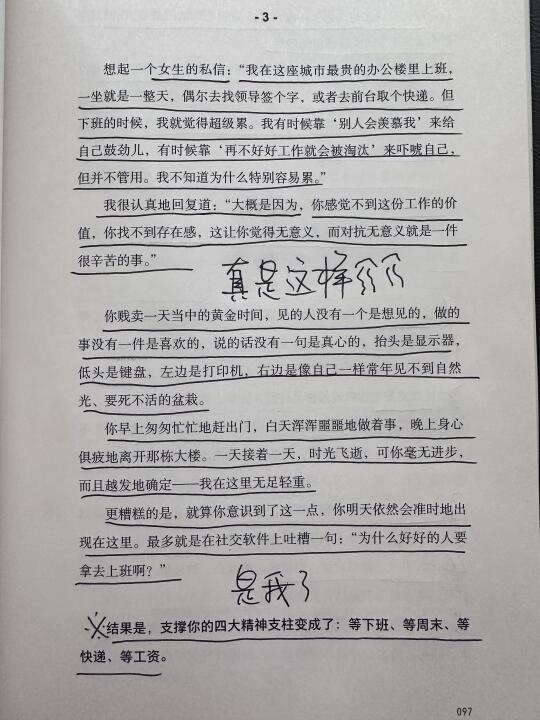 - 3 -
想起一个女生的私信：“我在这座城市最贵的办公楼里上班，
一坐就是一整天，偶尔去找领导签个字，或者去前台取个快递。但
下班的时候，我就觉得超级累。我有时候靠‘别人会羡慕我’来给
自己鼓劲儿，有时候靠‘再不好好工作就会被淘汰’来吓唬自己，
但并不管用。我不知道为什么特别容易累。”
我很认真地回复道：“大概是因为，你感觉不到这份工作的价
值，你找不到存在感，这让你觉得无意义，而对抗无意义就是一件
很辛苦的事。”
真是这样
你贱卖一天当中的黄金时间，见的人没有一个是想见的，做的
事没有一件是喜欢的，说的话没有一句是真心的，抬头是显示器，
低头是键盘，左边是打印机，右边是像自己一样常年见不到自然
光、要死不活的盆栽。
你早上匆匆忙忙地赶出门，白天浑浑噩噩地做着事，晚上身心
俱疲地离开那栋大楼。一天接着一天，时光飞逝，可你毫无进步，
而且越发地确定——我在这里无足轻重。
更糟糕的是，就算你意识到了这一点，你明天依然会准时地出
现在这里。最多就是在社交软件上吐槽一句：“为什么好好的人要
拿去上班啊？”
是我了
※结果是，支撑你的四大精神支柱变成了：等下班、等周末、等
快递、等工资。
097